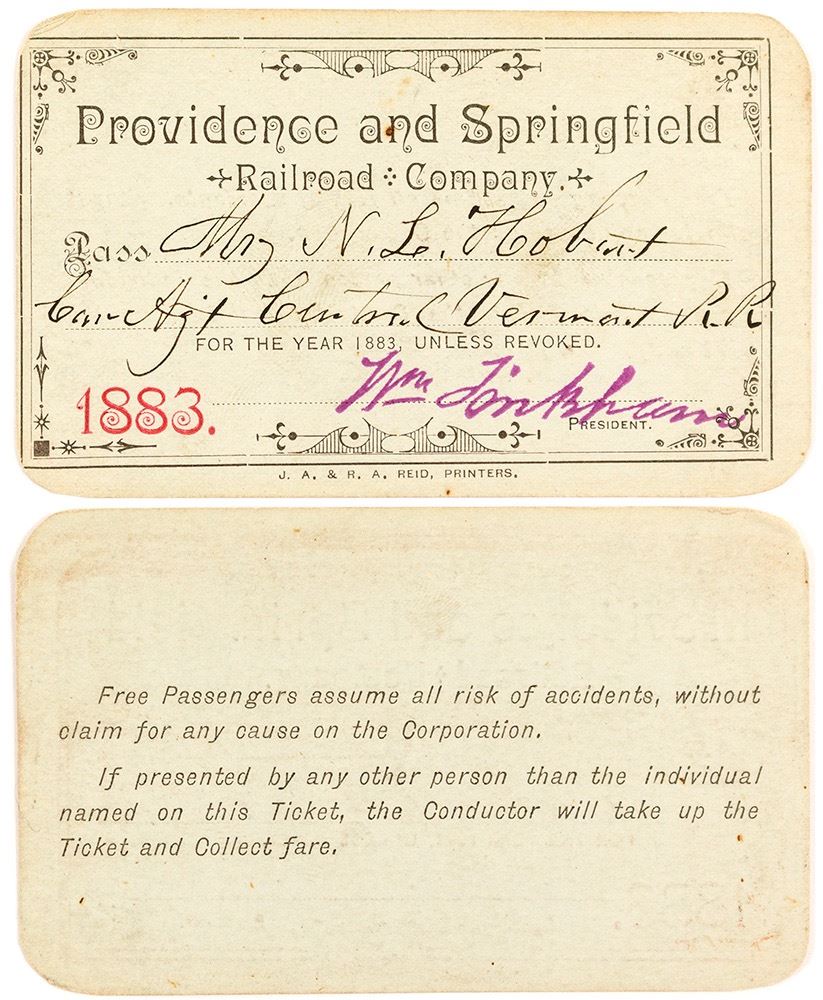 Providence and Springfield
Railroad Company.
Pass Mrs N. L. Hobart
Car Agt Central Vermont R.R
FOR THE YEAR 1883, UNLESS REVOKED.
1883. Wm Tinkham
PRESIDENT.
J. A. & R. A. REID, PRINTERS.
Free Passengers assume all risk of accidents, without
claim for any cause on the Corporation.
If presented by any other person than the individual
named on this Ticket, the Conductor will take up the
Ticket and Collect fare.